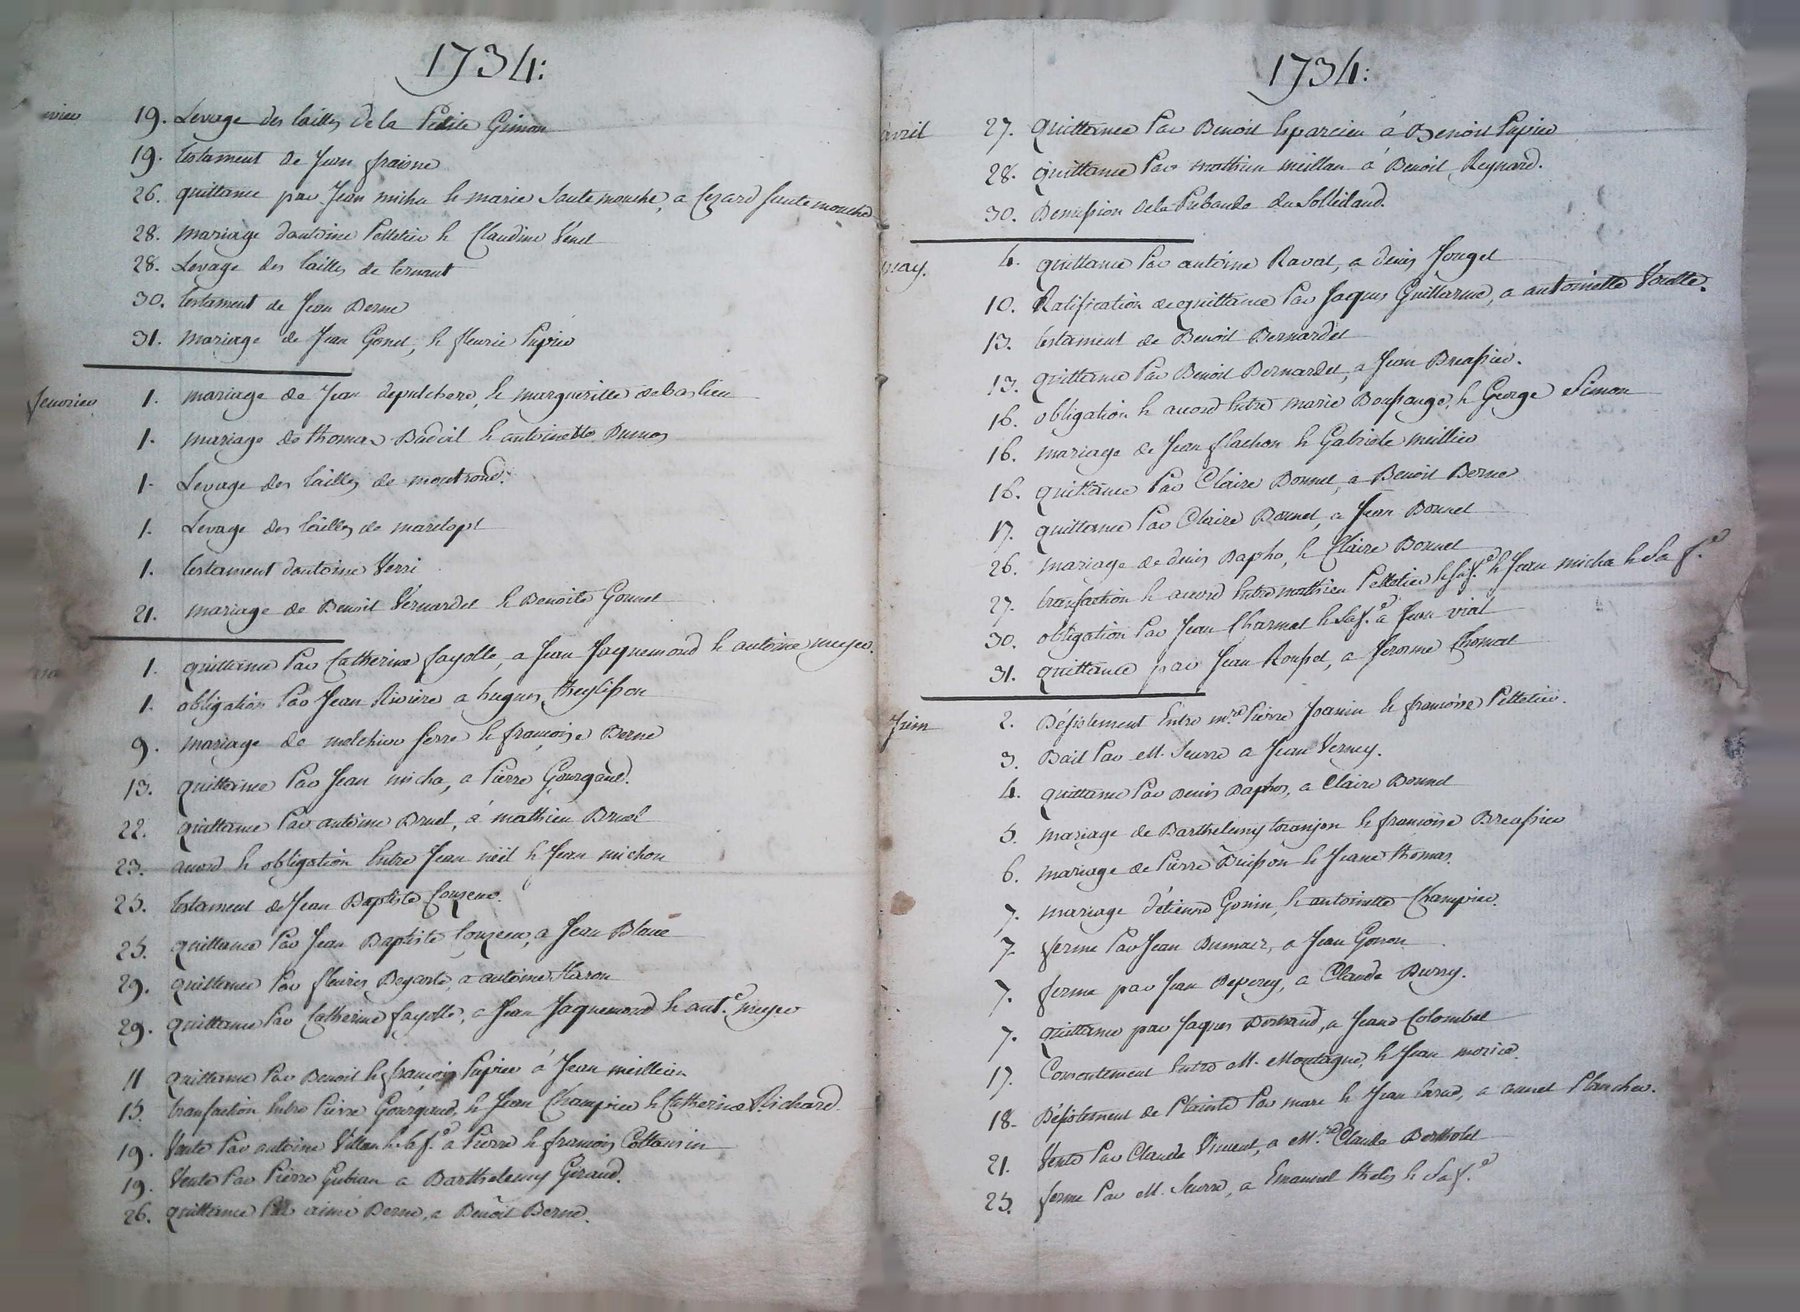 1734:
19. Levage des tailles de la Petite Gimon
19. testament de Jean fraisne
26. quittance par Jean micha & marie Sautemouche, a Cezard Sautemouche
28. mariage d'antoine Pelletier & Claudine Venet
28. Levage des tailles de
30. testament de Jean Berne
31. mariage de Jean Gonet, & fleurie Papier
feuvrier 1. mariage de Jean depulchere, & marguerille
1. mariage de thomas Badoil & antoinette Dumas
1. Levage des tailles de montrond.
1. Levage des tailles de marclopt
1. testament d'antoine Verri
21. mariage de Benoit Vernardet & Benoite Gonnet
1. quittance Par Catherine fayolle, a Jean Jaquemond & antoine meyer.
1. obligation Par Jean Riviere a hugues theylisson
9. mariage de melchior ferre & françoise Berne
13. quittance Par Jean micha, a Pierre Gourgaud.
22. quittance Par antoine Bruel, á mathieu Bruel
23. acord & obligation Entre Jean néel & Jean michon
25. testament de Jean Baptiste Couzeur.
25. quittance Par Jean Baptiste Couzeur, a Jean Blanc
29. quittance Par fleurie a antoine
29. quittance Par Catherine fayolle, a Jean Jaquemond & ant.e meyer
11 quittance Par Benoit & françois Papier á Jean meillier
15. transaction Entre Pierre Gourgaud, & Jean Champier & Catherine Richard
19. Vente Par antoine Villan & sa f.e a Pierre & francois Cottancin
19. Vente Par Pierre Gubian a Barthelemy Giraud.
26. quittance Par aimé Berne, a Benoit Berne.
1734:
avril 27. quittance Par Benoit á Benoit Papier
28. quittance Par mathieu meillan á Benoit Reynard.
30. Demission de la Prebande du Solleilland
may. 4. quittance Par antoine Ravat, a denis Jouget
10. Ratification de quittance Par Jaques Guillarme, a antoinette
13. testament de Benoit Bernardet
13. quittance Par Benoit Bernardet, a Jean Breassier.
16. obligation & acord Entre marie Boussange, & George Simon
16. mariage de Jean flachon & Gabriele meillier
16. quittance Par Claire Bonnet, a Benoit Berne
17. quittance Par Claire Bonnet, a Jean Bonnet
26. mariage de denis Dapho, & Claire Bonnet
27. transaction & acord Entre mathieu Pelletier & sa f.e & Jean micha & sa f.e
30. obligation Par Jean Charmet & sa f.e a Jean vial
31. quittance par Jean Rousset, a Jerosme Thomat
Juin 2. Désistement Entre m.re Pierre Joanin & françoise Pelletier.
3. Bail Par M. Seurre a Jean Verney.
4. quittance Par Denis Daphos, a Claire Bonnet
5. mariage de Barthelemy toranjon & francoise Breassier
6. mariage de Pierre Buisson & Jeane thomas.
7. mariage d'étienne Gonin, & antoinette Champier.
7. ferme Par Jean Dumas, a Jean Gonon
7. ferme par Jean Deperey, a Claude Durry.
7. quittance par Jaques Bertrand, a Jeane Colombet
17. Consentement Entre M. Montagne, & Jean morice.
18. Désistement de Plainte Par marc & Jean a annet Plancher.
21. Vente Par Claude Vincent, a M.re Claude Bertholet
25. ferme Par M. Seurre, a Emanuel thelis & sa f.e